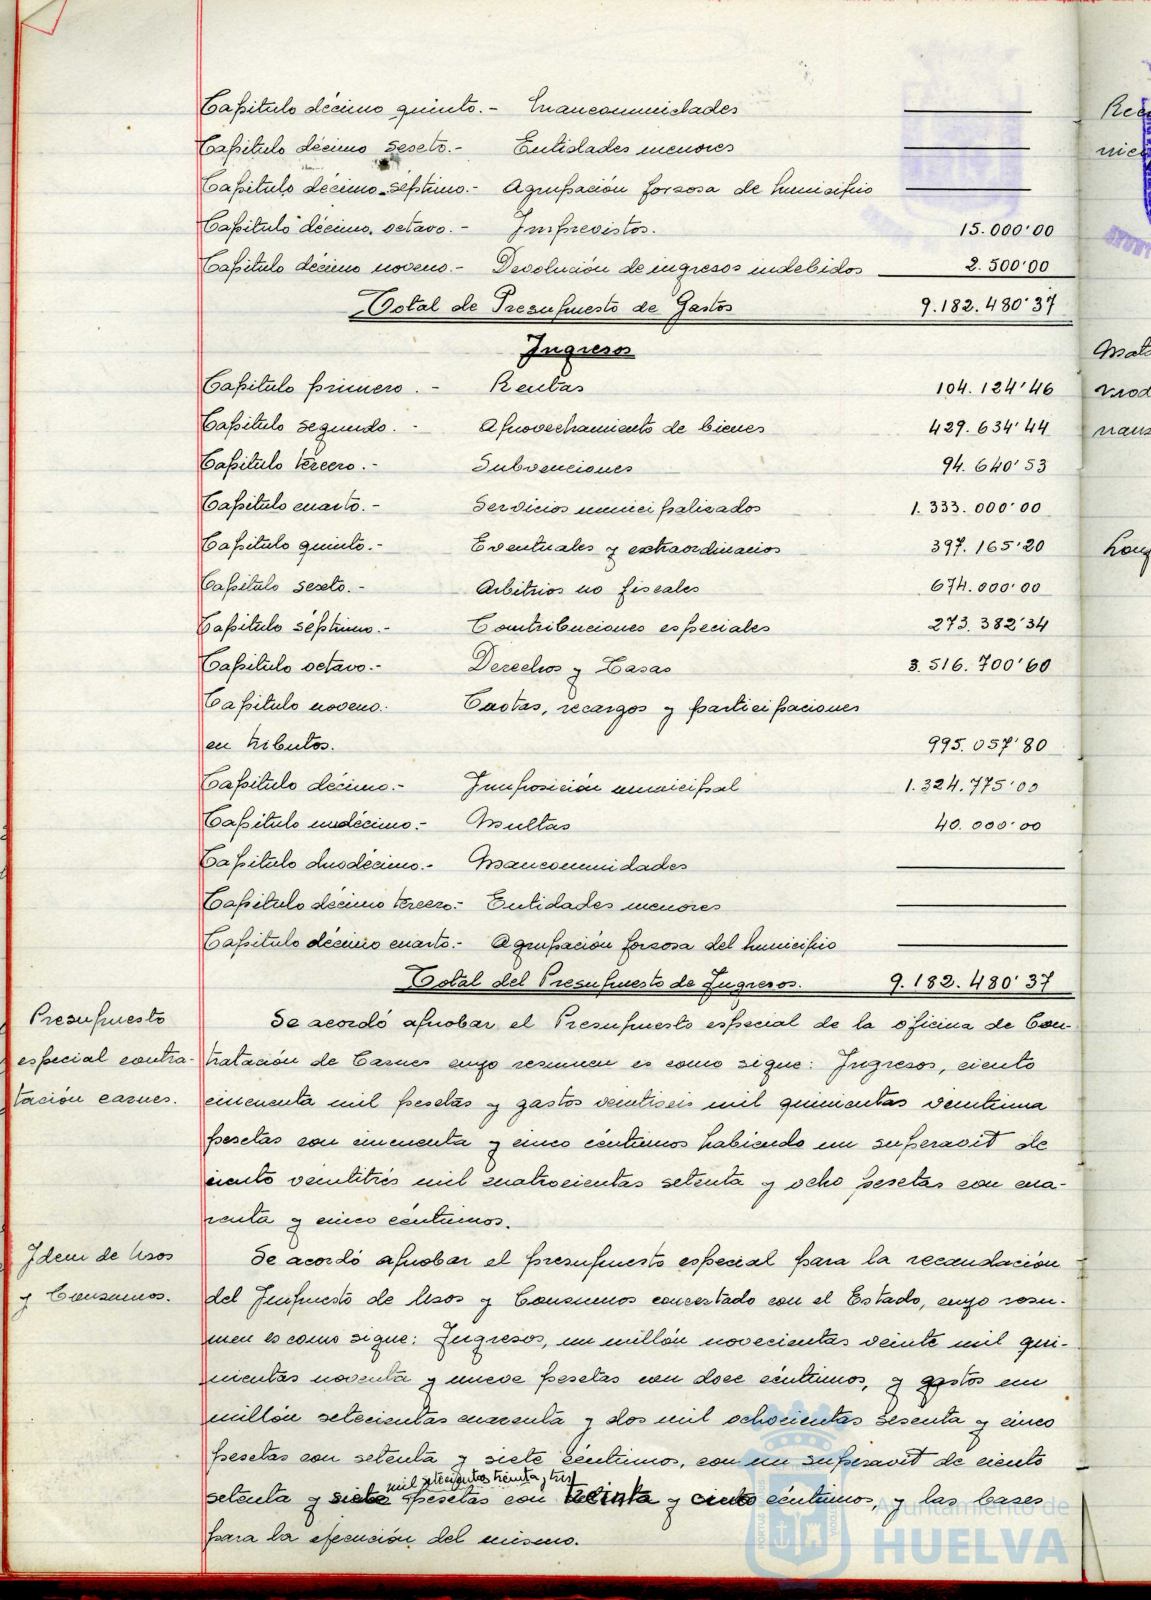 Capítulo décimo quinto.- Mancomunidades
Capítulo décimo sexto.- Entidades menores
Capítulo décimo séptimo.- Agrupación forzosa de Municipio
Capítulo décimo octavo.- Imprevistos. 15.000'00
Capítulo décimo noveno.- Devolución de ingresos indebidos 2.500'00
Total de Presupuesto de Gastos 9.182.480'37
Ingresos
Capítulo primero.- Rentas 104.124'46
Capítulo segundo.- Aprovechamiento de bienes 429.634'44
Capítulo tercero.- Subvenciones 94.640'53
Capítulo cuarto.- Servicios municipalizados 1.333.000'00
Capítulo quinto.- Eventuales y extraordinarios 397.165'20
Capítulo sexto.- Arbitrios no fiscales 674.000'00
Capítulo séptimo.- Contribuciones especiales 273.382'34
Capítulo octavo.- Derechos y Tasas 3.516.700'60
Capítulo noveno.- Cuotas, recargos y participaciones
en tributos. 995.057'80
Capítulo décimo.- Imposición municipal 1.324.775'00
Capítulo undécimo.- Multas 40.000'00
Capítulo duodécimo.- Mancomunidades
Capítulo décimo tercero.- Entidades menores
Capítulo décimo cuarto.- Agrupación forzosa del Municipio
Total del Presupuesto de Ingresos. 9.182.480'37
Presupuesto
especial contra-
tación carnes.
Se acordó aprobar el Presupuesto especial de la oficina de Con-
tratación de Carnes cuyo resumen es como sigue: Ingresos, ciento
cincuenta mil pesetas y gastos veintiseis mil quinientas veintiuna
pesetas con cincuenta y cinco céntimos habiendo un superavit de
ciento veintitrés mil cuatrocientas setenta y ocho pesetas con cua-
renta y cinco céntimos.
Idem de Usos
y Consumos.
Se acordó aprobar el presupuesto especial para la recaudación
del Impuesto de Usos y Consumos concertado con el Estado, cuyo resu-
men es como sigue: Ingresos, un millón novecientas veinte mil qui-
nientas noventa y nueve pesetas con doce céntimos, y gastos un
millón setecientas cuarenta y dos mil ochocientas sesenta y cinco
pesetas con setenta y siete céntimos, con un superavit de ciento
mil setecientas treinta y tres
setenta y siete pesetas con treinta y cinco céntimos, y las bases
para la ejecución del mismo.
Ayuntamiento de
HUELVA